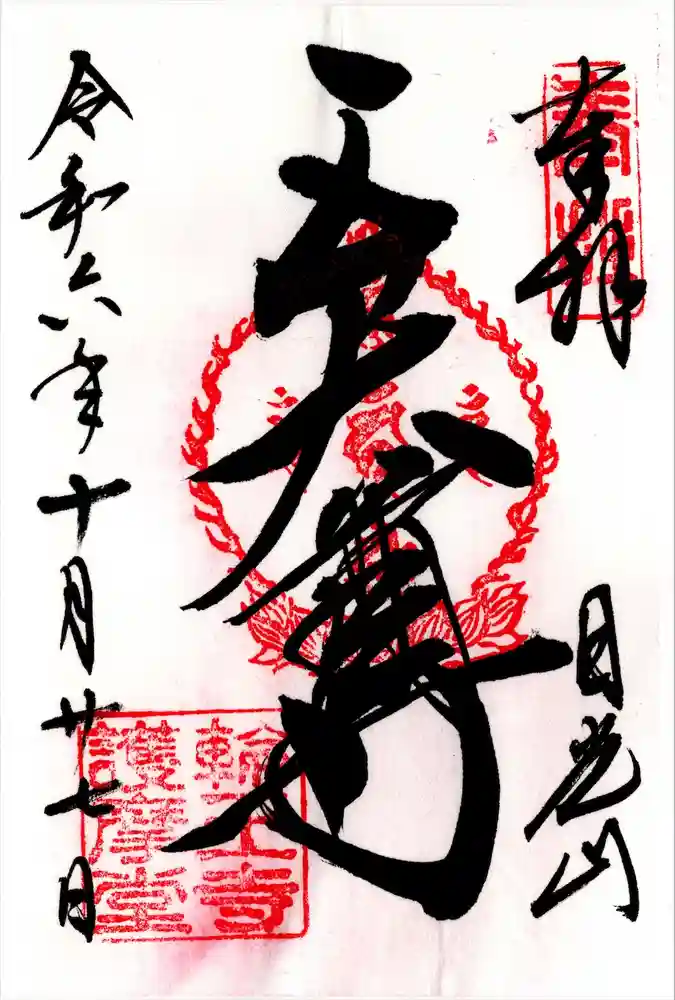 奉拝
奉拝
日光山
五大尊
令和六年十月廿七日
輪王寺
護摩堂